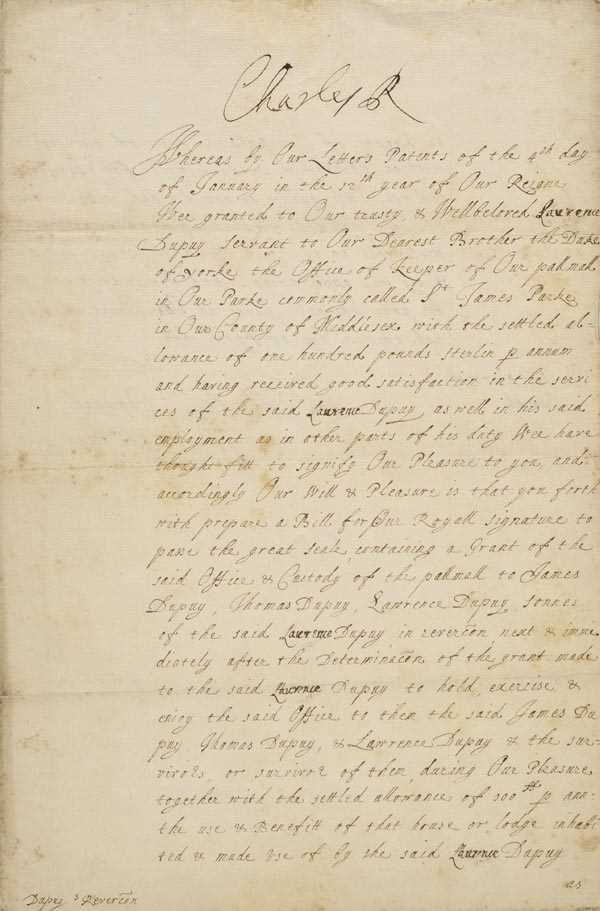 Charles R
Whereas by Our Letters Patents of the 4th day
of January in the 12th year of Our Reigne
Wee granted to Our trusty & Wellbeloved Laurence
Dupuy Servant to Our Dearest Brother the Duke
of Yorke the Office of Keeper of Our pallmall
in Our Parke commonly called St James Parke
in Our County of Middlesex with the settled al-
lowance of one hundred pounds sterlin p annum
and having received good satisfaction in the servi
ces of the said Laurence Dupuy as well in his said
employment as in other parts of his duty Wee have
thought fitt to signify Our Pleasure to you, and
accordingly Our Will & Pleasure is that you forth
with prepare a Bill for Our Royall signature to
passe the great seale, containing a Grant of the
said Office & Custody of the pallmall to James
Dupuy, Thomas Dupuy, Lawrence Dupuy sonnes
of the said Laurence Dupuy in revercõn next & imme
diately after the Determinacõn of the grant made
to the said Laurence Dupuy to hold, exercise &
enioy the said Office to them the said James Du
puy Thomas Dupuy, & Lawrence Dupuy & the sur-
vivors, or survivor of them, during Our Pleasure,
together with the settled allowance of 100 ll p ann
the use & Benefitt of that house or lodge inhabi
ted & made use of by the said Laurence Dupuy
as
Dupuy s Revercõn